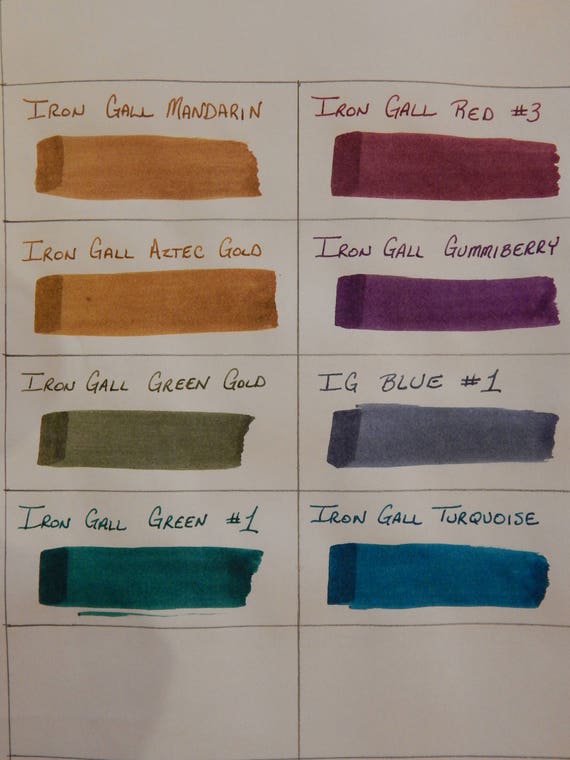 Iron Gall Mandarin
Iron Gall Red #3
Iron Gall Aztec Gold
Iron Gall Gummiberry
Iron Gall Green Gold
IG Blue #1
Iron Gall Green #1
Iron Gall Turquoise